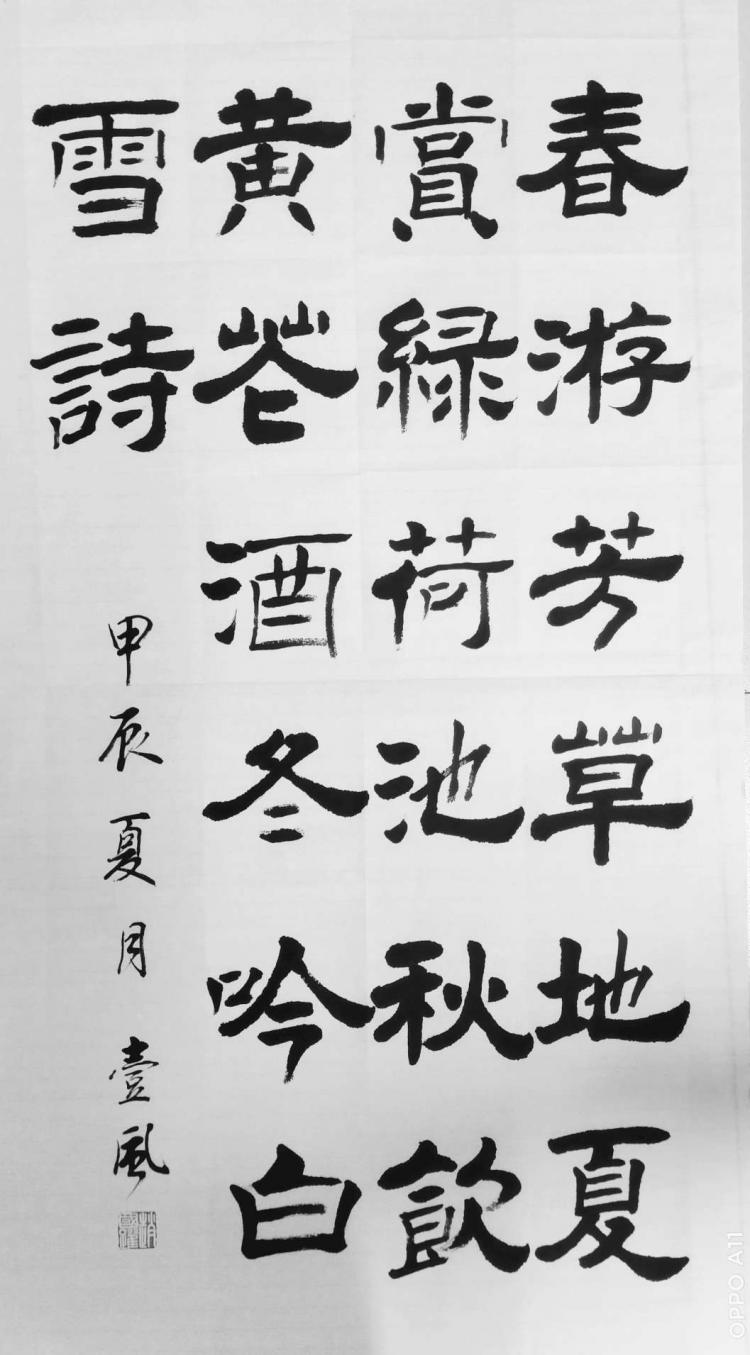 春游芳草地夏
賞綠荷池秋飲
黄花酒冬吟白
雪詩
甲辰夏月壹風
OPPO A11